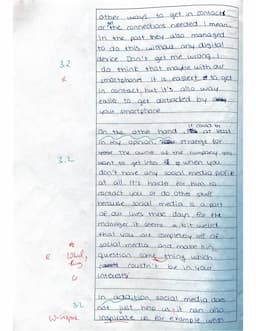 other ways to get in contact
or the connections needed. I mean,
in the past they also managed
to do this without any digital
device. Don't get me wrong, I
3.2
do think that maybe with our
smartphone it is easier to get
in contact, but it's also way
easier to get distracted by
your smartphone
it could be
On the other hand, at least
in my opinion, strange for
3.2
the owner of the company you
want to get into if when you
don't have any social media profile
at all. It's harder for him to
contact you or do other stuff
because social media is a part
of our lives these days. For the
manager it seems a bit weird
that you are completely off of
social media and make him
question some thing which
couldn't be in your
interests
3.2
In addition, social media does
not just help us, it can also
inspirate us for example when